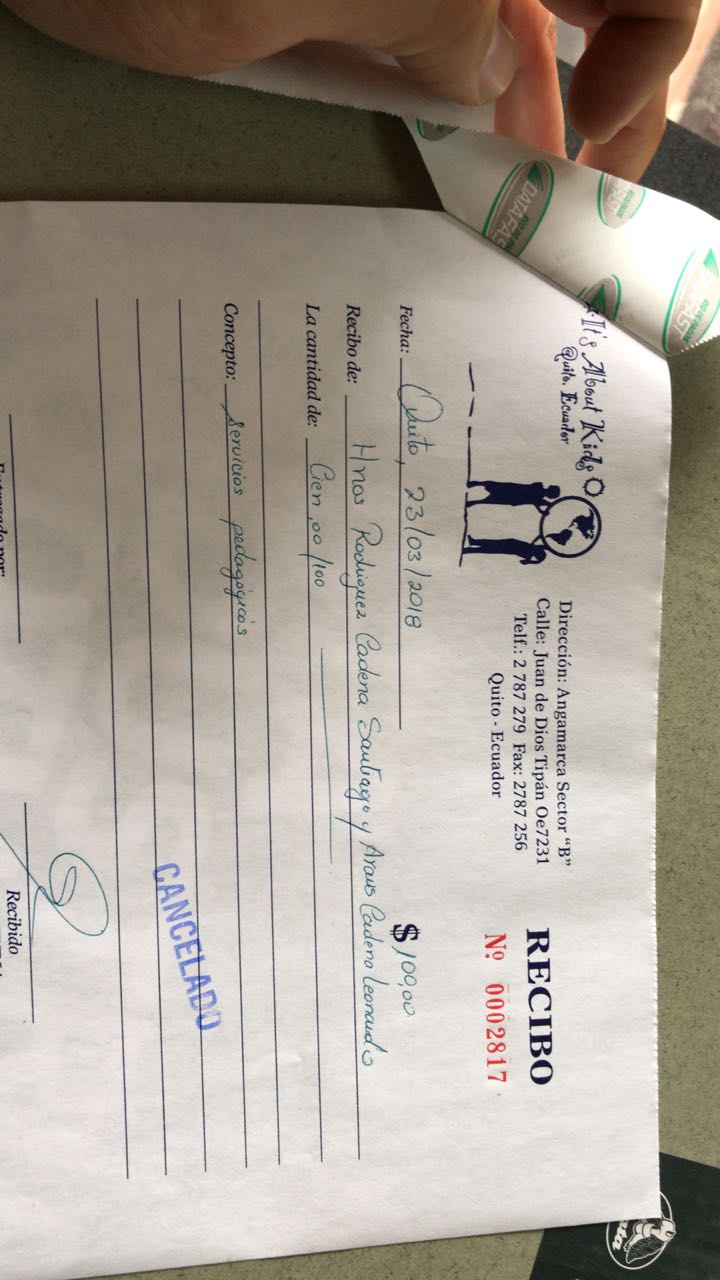 It's About Kids
Quito, Ecuador
Dirección: Angamarca Sector "B"
Calle: Juan de Dios Tipán Oe7231
Telf.: 2 787 279 Fax: 2787 256
Quito - Ecuador
RECIBO
Nº 0002817
Fecha: Quito, 23/03/2018
$ 100,00
Recibo de: Hnos Rodriguez Cadena Santiago y Araus Cadena Leonardo
La cantidad de: Cien ,00/100
Concepto: servicios pedagógicos
CANCELADO
Entregado por:
Recibido
DATAFAST
DATAFAST
DATAFAST